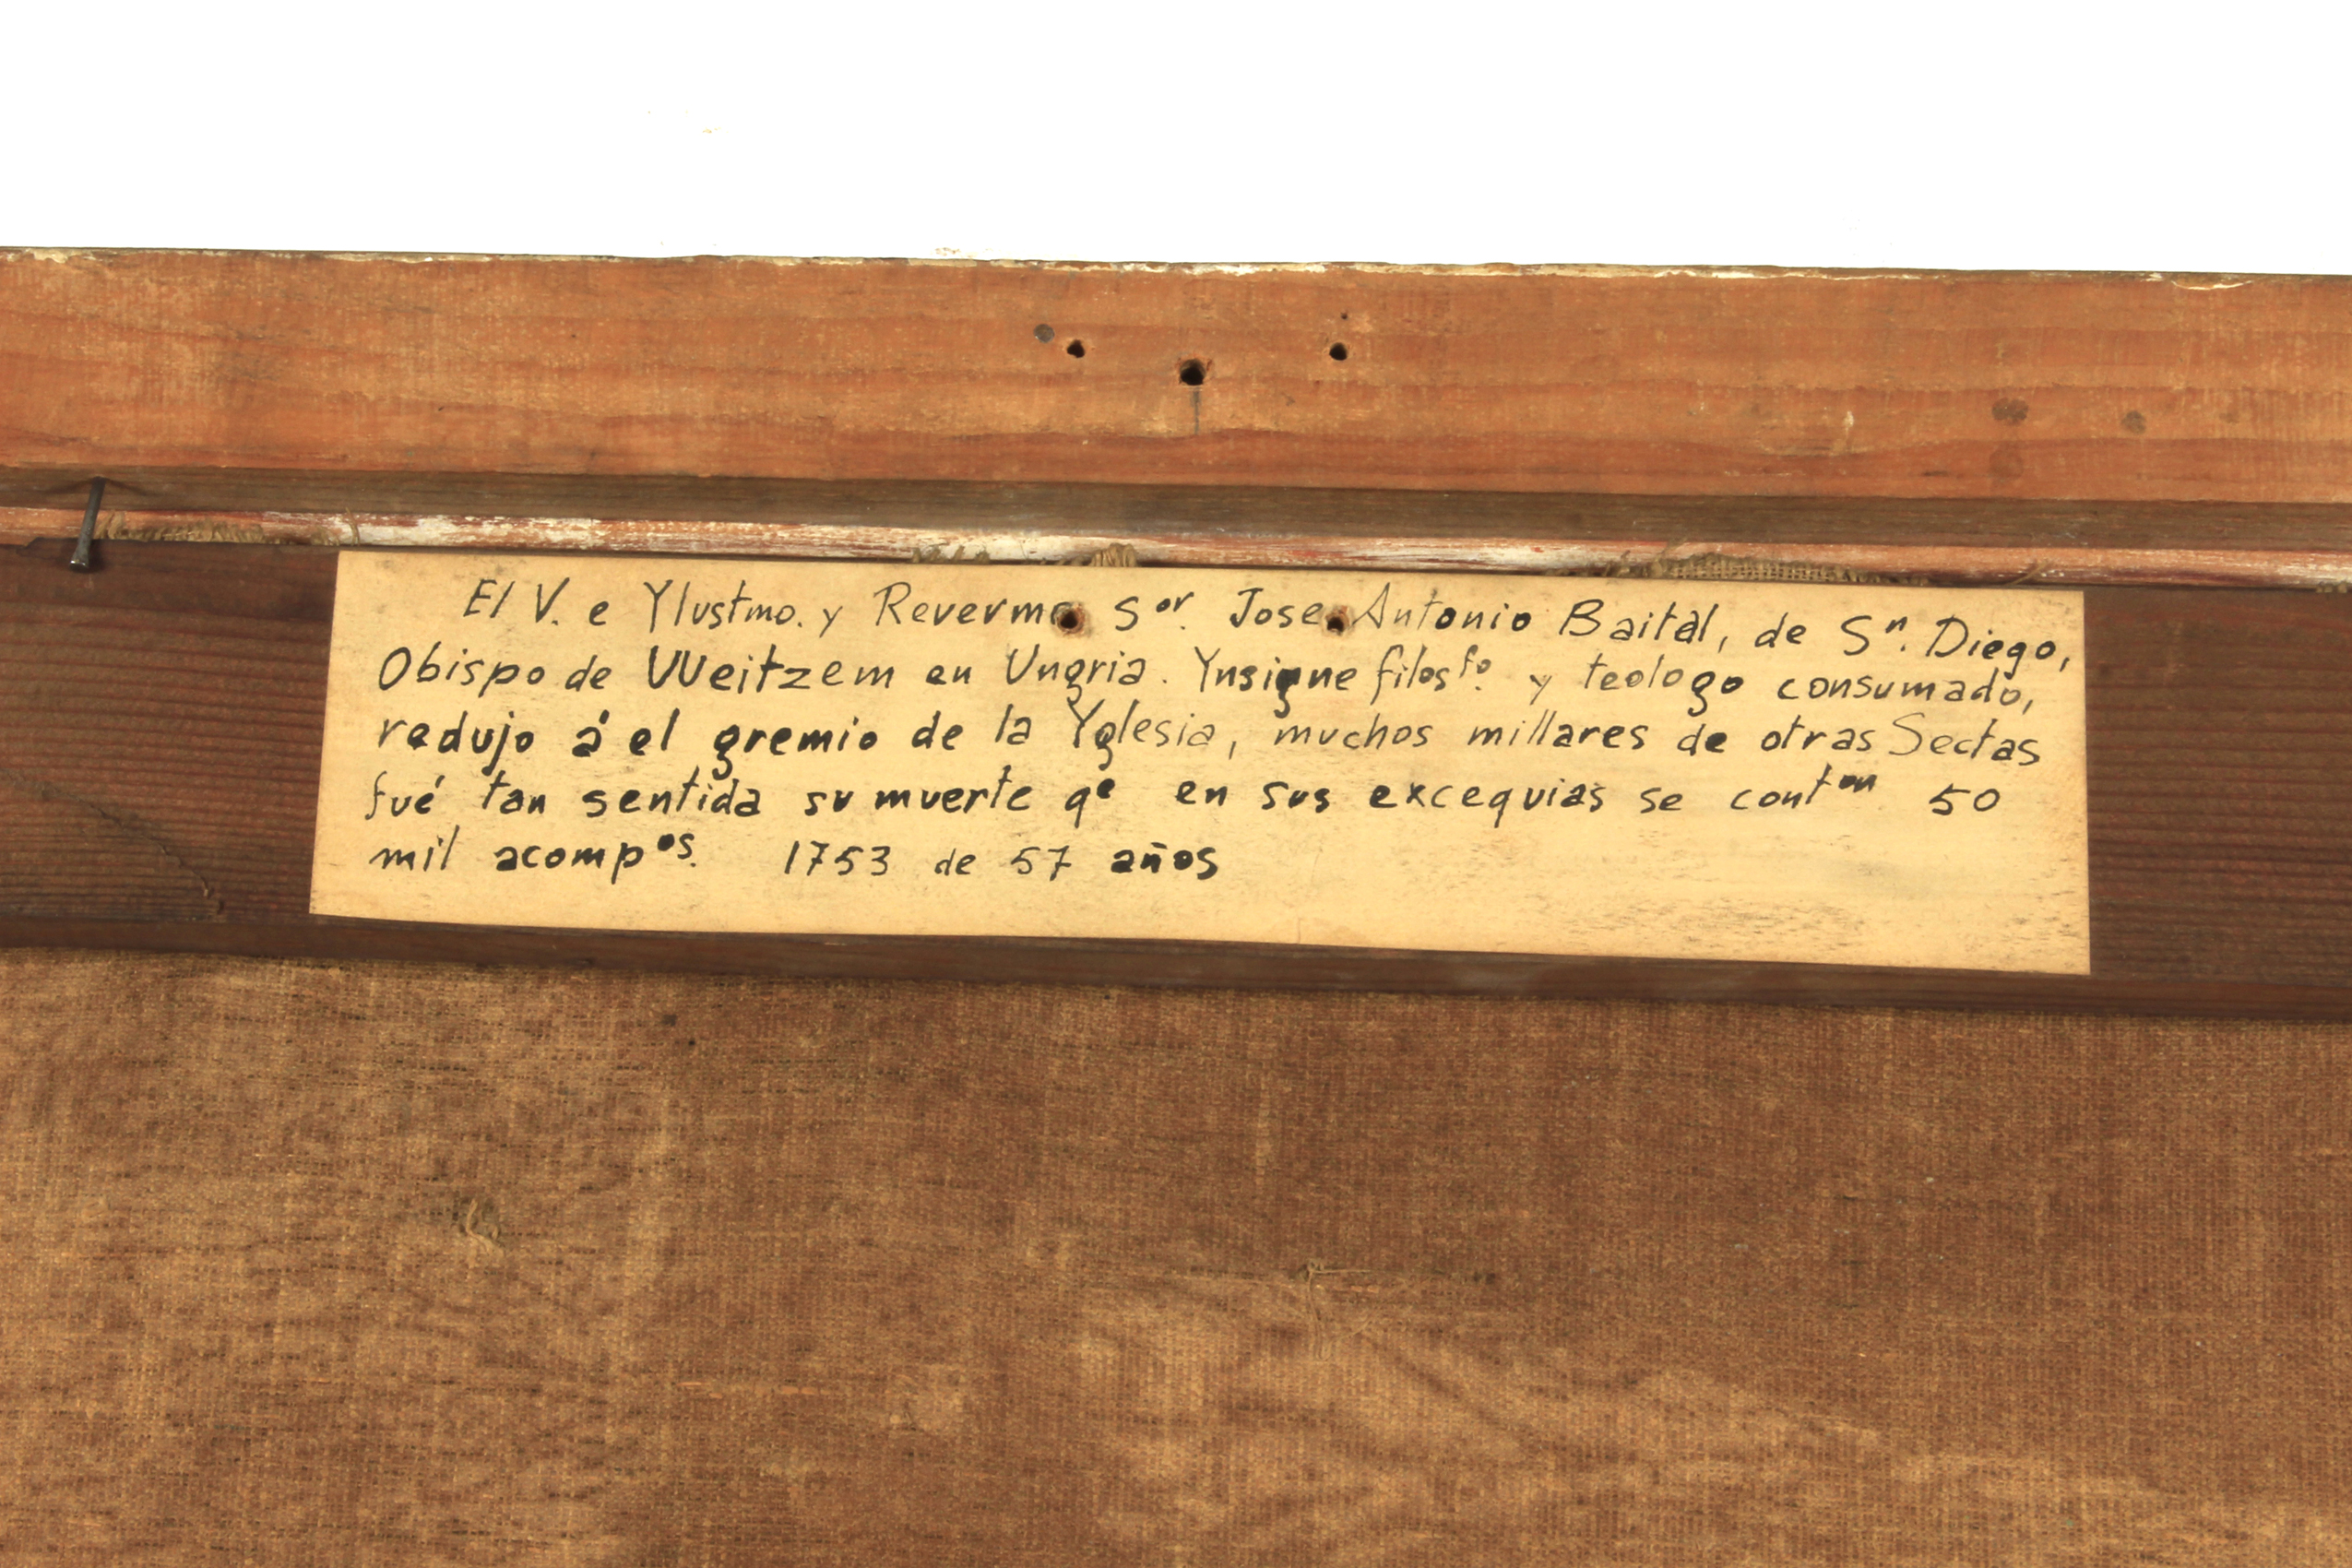 El V. e Ylustmo. y Revermo Sor. Jose Antonio Baital, de Sn. Diego,
Obispo de Weitzem en Ungria. Ynsigne filosfo. y teologo consumado,
redujo á el gremio de la Yglesia, muchos millares de otras Sectas
fué tan sentida su muerte qe en sus excequias se conton 50
mil acompos. 1753 de 57 años